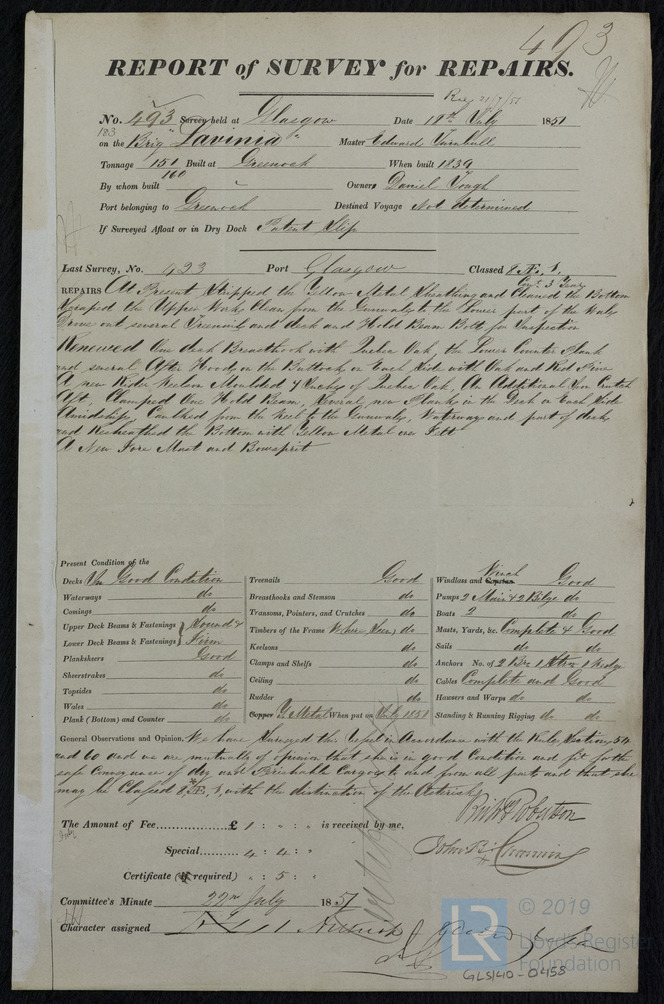 493
REPORT of SURVEY for REPAIRS.
No. 493 Survey held at Glasgow Date 18th July 1851
183
on the Brig "Lavinia" Master Edward Turnbull
Tonnage 151 Built at Greenock When built 1839
160
By whom built " Owner Daniel Tough
Port belonging to Greenock Destined Voyage Not determined
If Surveyed Afloat or in Dry Dock Patent Slip
Last Survey, No. 423 Port Glasgow Classed
REPAIRS At Present Stripped the Yellow Metal Sheathing and Cleaned the Bottom
Scraped the Upper Works Clean from the Gunwales to the Lower part of the Wales
Drove out several Treenails and deck and Hold Beam Bolts for Inspection
Renewed One deck Breasthook with Quebec Oak, the Lower Counter Plank
and several After Hoods on the Buttocks on Each Side with Oak and Red Pine
A new Rider Keelson Moulded 9 Inches of Quebec Oak, An Additional Iron Crutch
Aft, Clamped One Hold Beam, Several new Planks in the Deck on Each Side
Amidships Caulked from the Keel to the Gunwales, Waterways and part of deck,
and Resheathed the Bottom with Yellow Metal over Felt
A New Fore Mast and Bowsprit
Present Condition of the
Decks In Good Condition
Waterways do
Comings do
Upper Deck Beams & Fastenings } Sound &
Lower Deck Beams & Fastenings } Firm
Planksheers Good
Sheerstrakes do
Topsides do
Wales do
Plank (Bottom) and Counter do
Treenails Good
Breasthooks and Stemson do
Transoms, Pointers, and Crutches do
Timbers of the Frame Where Seen do
Keelsons do
Clamps and Shelfs do
Ceiling do
Rudder do
Copper Y Metal When put on July 1851
Winch
Windlass and Capstan Good
Pumps 2 Main & 2 Bilge do
Boats 2 do
Masts, Yards, &c. Complete & Good
Sails do do
Anchors No. of 2 Br 1 Stm 1 Kedge
Cables Complete and Good
Hawsers and Warps do do
Standing & Running Rigging do do
General Observations and Opinion, We have Surveyed this Vessel in Accordance with the Rules Sections 54
and 60 and we are mutually of opinion that she is in good Condition and fit for the
safe Conveyance of dry and Perishable Cargoes to and from all ports and that she
may be Classed with the distinction of the Asterisk
The Amount of Fee £ 1 : " : " is received by me,
Special 4 : 4 : "
Certificate (if required) " : 5 : "
Robertson
John Cumming
Committee's Minute 22nd July 1851
Character assigned
LR
© 2019
Lloyd's Register
Foundation
GLS140-0458